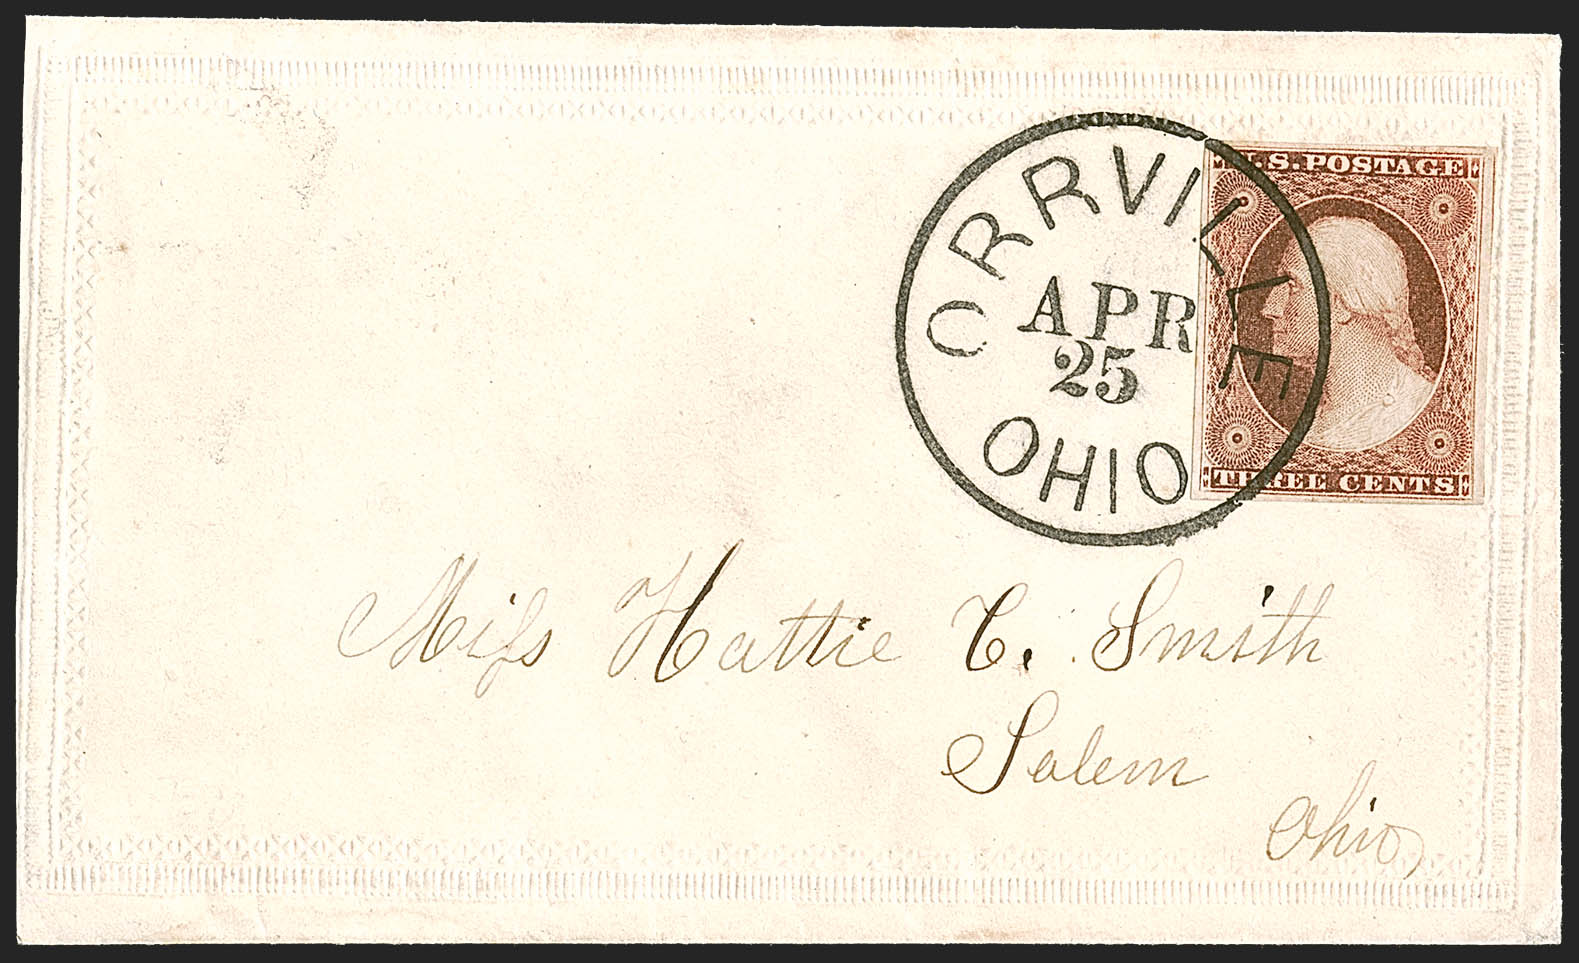 ORRVILLE
APR
25
OHIO
U.S. POSTAGE
THREE CENTS
Miſs Hattie C. Smith
Salem
Ohio